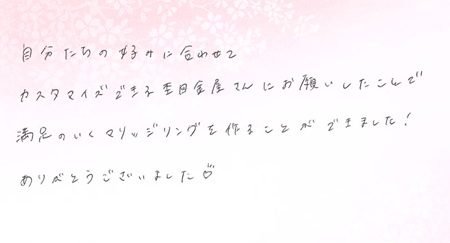 自分たちの好みに合わせて
カスタマイズできる杢目金屋さんにお願いしたことで
満足のいくマリッジリングを作ることができました!
ありがとうございました♡